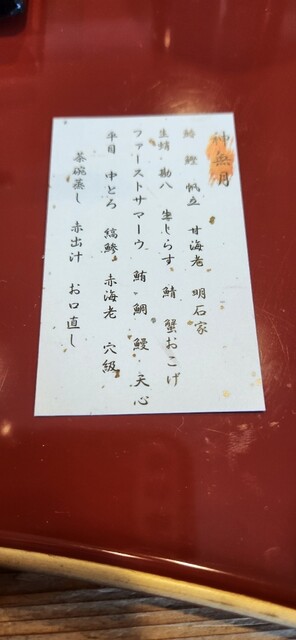 神無月
鮭 鰹 帆立 甘海老 明石家
生鯖 勘八 生しらす 鯖 蟹おこげ
ファーストサマーウ 鮪 鯛 鰻 天心
平目 中とろ 縞鯵 赤海老 穴級
茶碗蒸し 赤出汁 お口直し